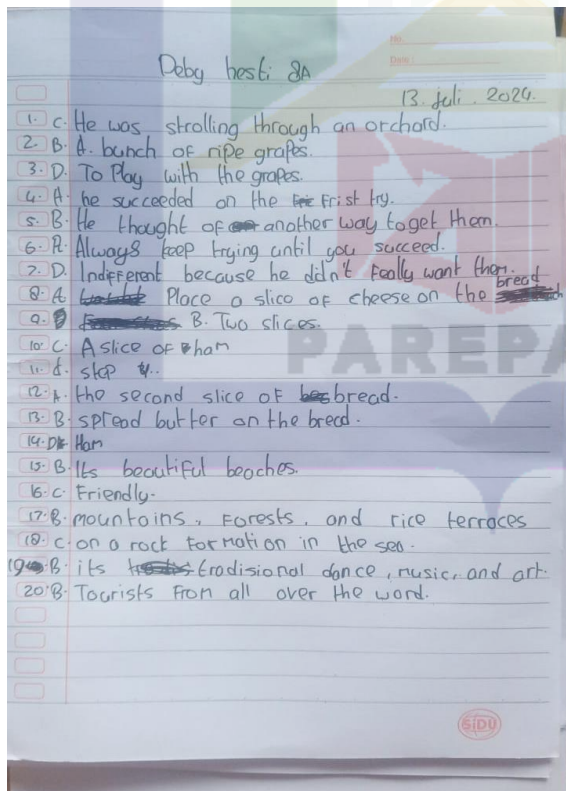 No.
Date:
Deby hesti 8A
13. juli. 2024.
1. C. He was strolling through an orchard.
2. B. A. bunch of ripe grapes.
3. D. To Play with the grapes.
4. A. he succeeded on the Frist try.
5. B. He thought of another way to get them.
6. A. Always keep trying until you succeed.
7. D. Indifferent because he didn't really want them.
8. A Place a slice of cheese on the bread
9. B. Two slices.
10. C. A slice of ham
11. step 4..
12. A. the second slice of bread.
13. B. spread butter on the bread.
14. D. Ham
15. B. Its beautiful beaches.
16. C. Friendly.
17. B. mountains, Forests, and rice terraces
18. C. on a rock formation in the sea.
19. B. its tradisional dance, music, and art.
20. B. Tourists from all over the word.
PAREPA
SIDU